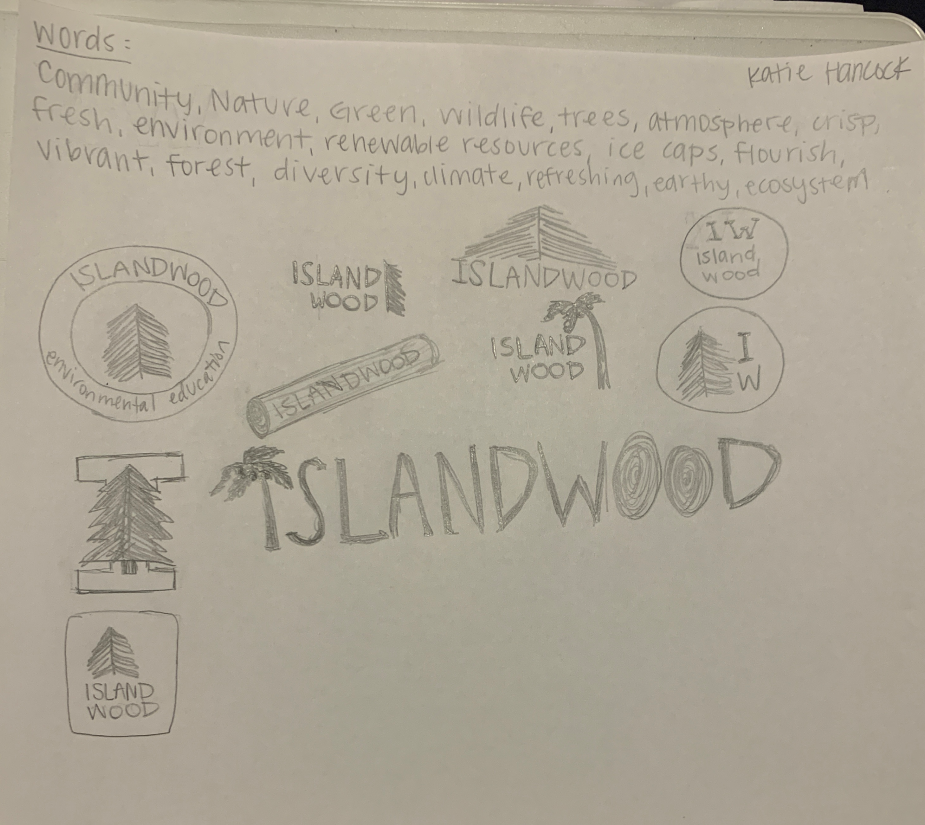 Words:
Katie Hancock
Community, Nature, Green, wildlife, trees, atmosphere, crisp,
fresh, environment, renewable resources, ice caps, flourish,
vibrant, forest, diversity, climate, refreshing, earthy, ecosystem.
ISLANDWOOD
environmental education
ISLAND
WOOD
ISLANDWOOD
IW
island
wood
ISLANDWOOD
ISLAND
WOOD
I
W
I
ISLANDWOOD
ISLAND
WOOD